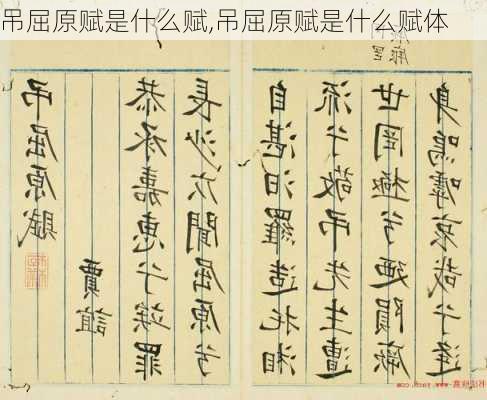 吊屈原赋是什么赋,吊屈原赋是什么赋体
吊屈原賦
賈誼
恭承嘉惠兮竢罪
長沙仄聞屈原兮
自湛汨羅造托湘
流兮敬吊先生遭
世罔極兮迺隕厥
身嗚嘑哀哉兮逢